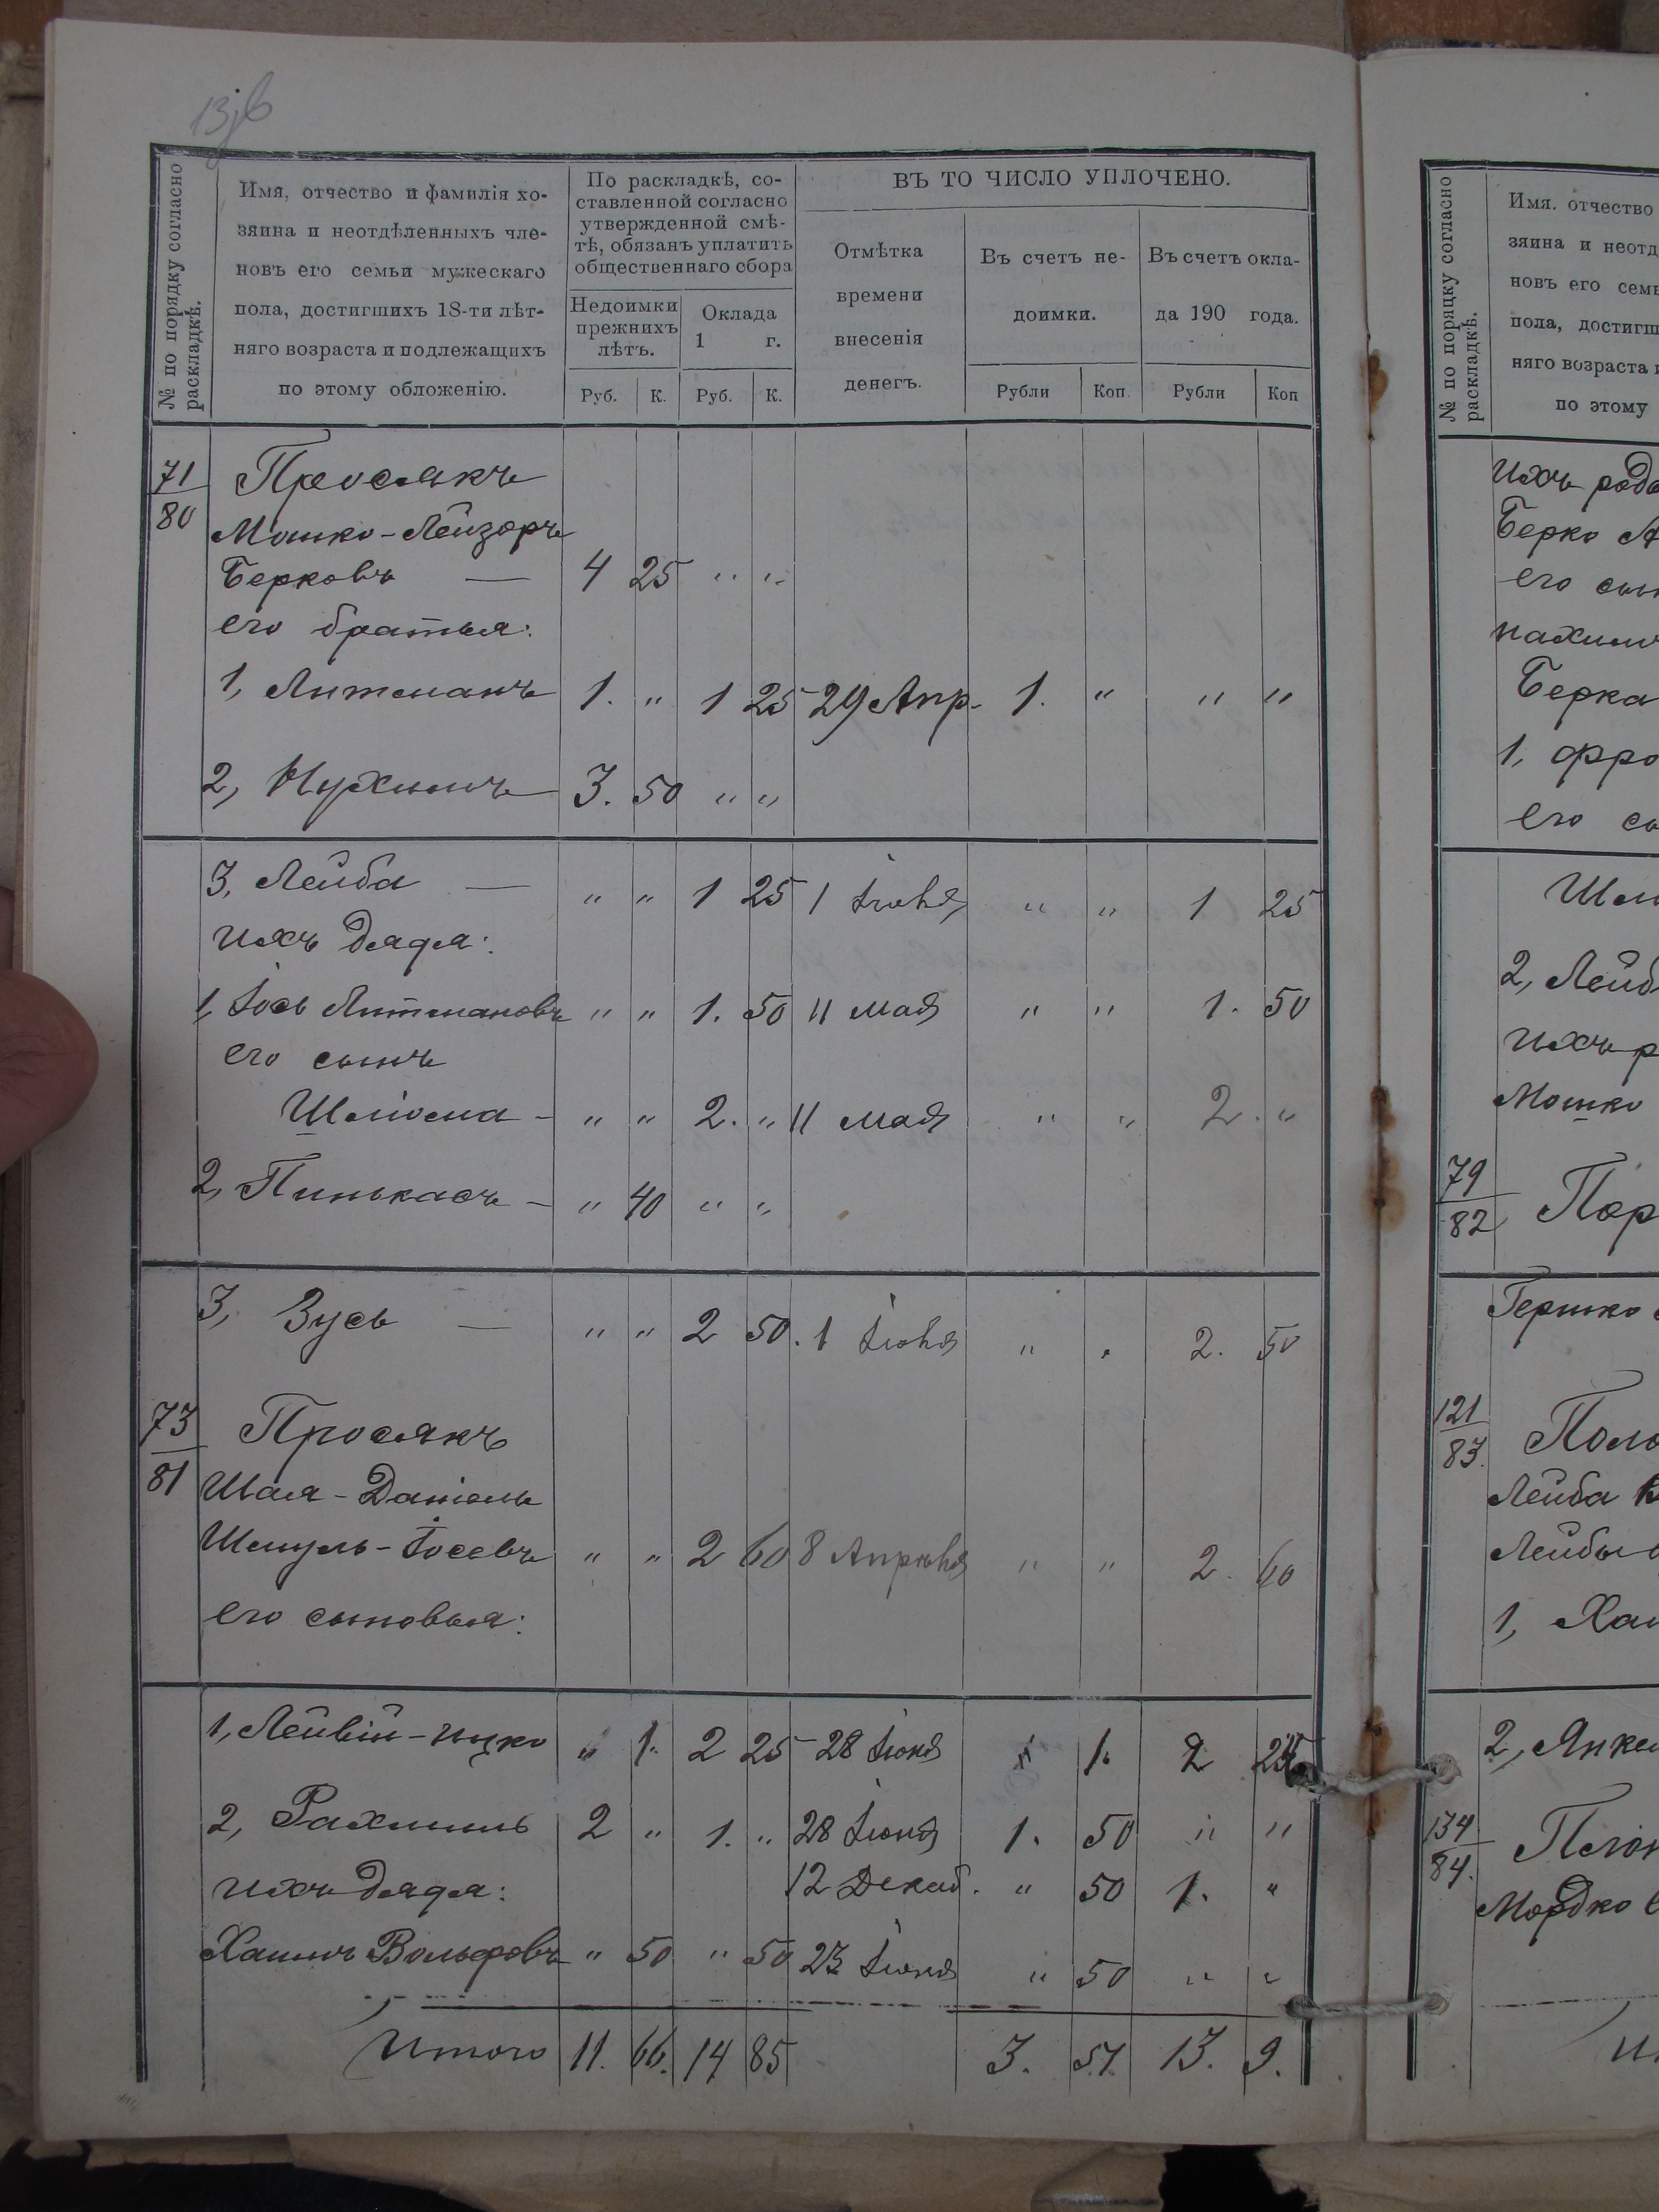 № по порядку согласно раскладкѣ.
Имя, отчество и фамилія хо-
зяина и неотдѣленныхъ чле-
новъ его семьи мужескаго
пола, достигшихъ 18-ти лѣт-
няго возраста и подлежащихъ
по этому обложенію.
По раскладкѣ, со-
ставленной согласно
утвержденной смѣ-
тѣ, обязанъ уплатить
общественнаго сбора
Недоимки
прежнихъ
лѣтъ.
Оклада
1 г.
Руб. К. Руб. К.
ВЪ ТО ЧИСЛО УПЛОЧЕНО.
Отмѣтка
времени
внесенія
денегъ.
Въ счетъ не-
доимки.
Въ счетъ окла-
да 190 года.
Рубли Коп. Рубли Коп
71/80 Просякъ
Мошко-Лейзоръ
Берковъ — 4 25 " "
его братья:
1, Литманъ 1. " 1 25 29 Апр. 1. " " "
2, Нухимъ 3. 50 " "
3, Лейба — " " 1 25 1 Іюня " " 1 25
ихъ дядя:
1, Іось Литмановъ " " 1. 50 11 мая " " 1. 50
его сынъ
Шліома - " " 2. " 11 мая " " 2. "
2, Пинькасъ - " 40 " "
3, Зусь — " " 2 50. 1 Іюня " " 2. 50
73/81 Просякъ
Шая-Даніель
Шмуль-Іосевъ " " 2 60 8 Апрѣля " " 2. 60
его сыновья:
1, Лейвій-Ицко " 1. 2 25 28 Іюня " 1. 2 25
2, Рахмиль 2 " 1. " 28 Іюня 1. 50 " "
ихъ дядя: 12 Декаб. " 50 1. "
Хаимъ Вольфовъ " 50 " 50 23 Іюня " 50 " "
Итого 11. 66. 14 85 3. 51. 13. 9.
№ по порядку согласно раскладкѣ.
Имя. отчество
зяина и неотд
новъ его семь
пола, достигш
няго возраста и
по этому
ихъ
Берко
его
Берка
1,
его
2, Лейб
ихъ
Мошко
79/82 Пор
Гершко
121/83. Поло
Лейба
Лейбы
1, Хаи
2, Янке
134/84.
Мордко